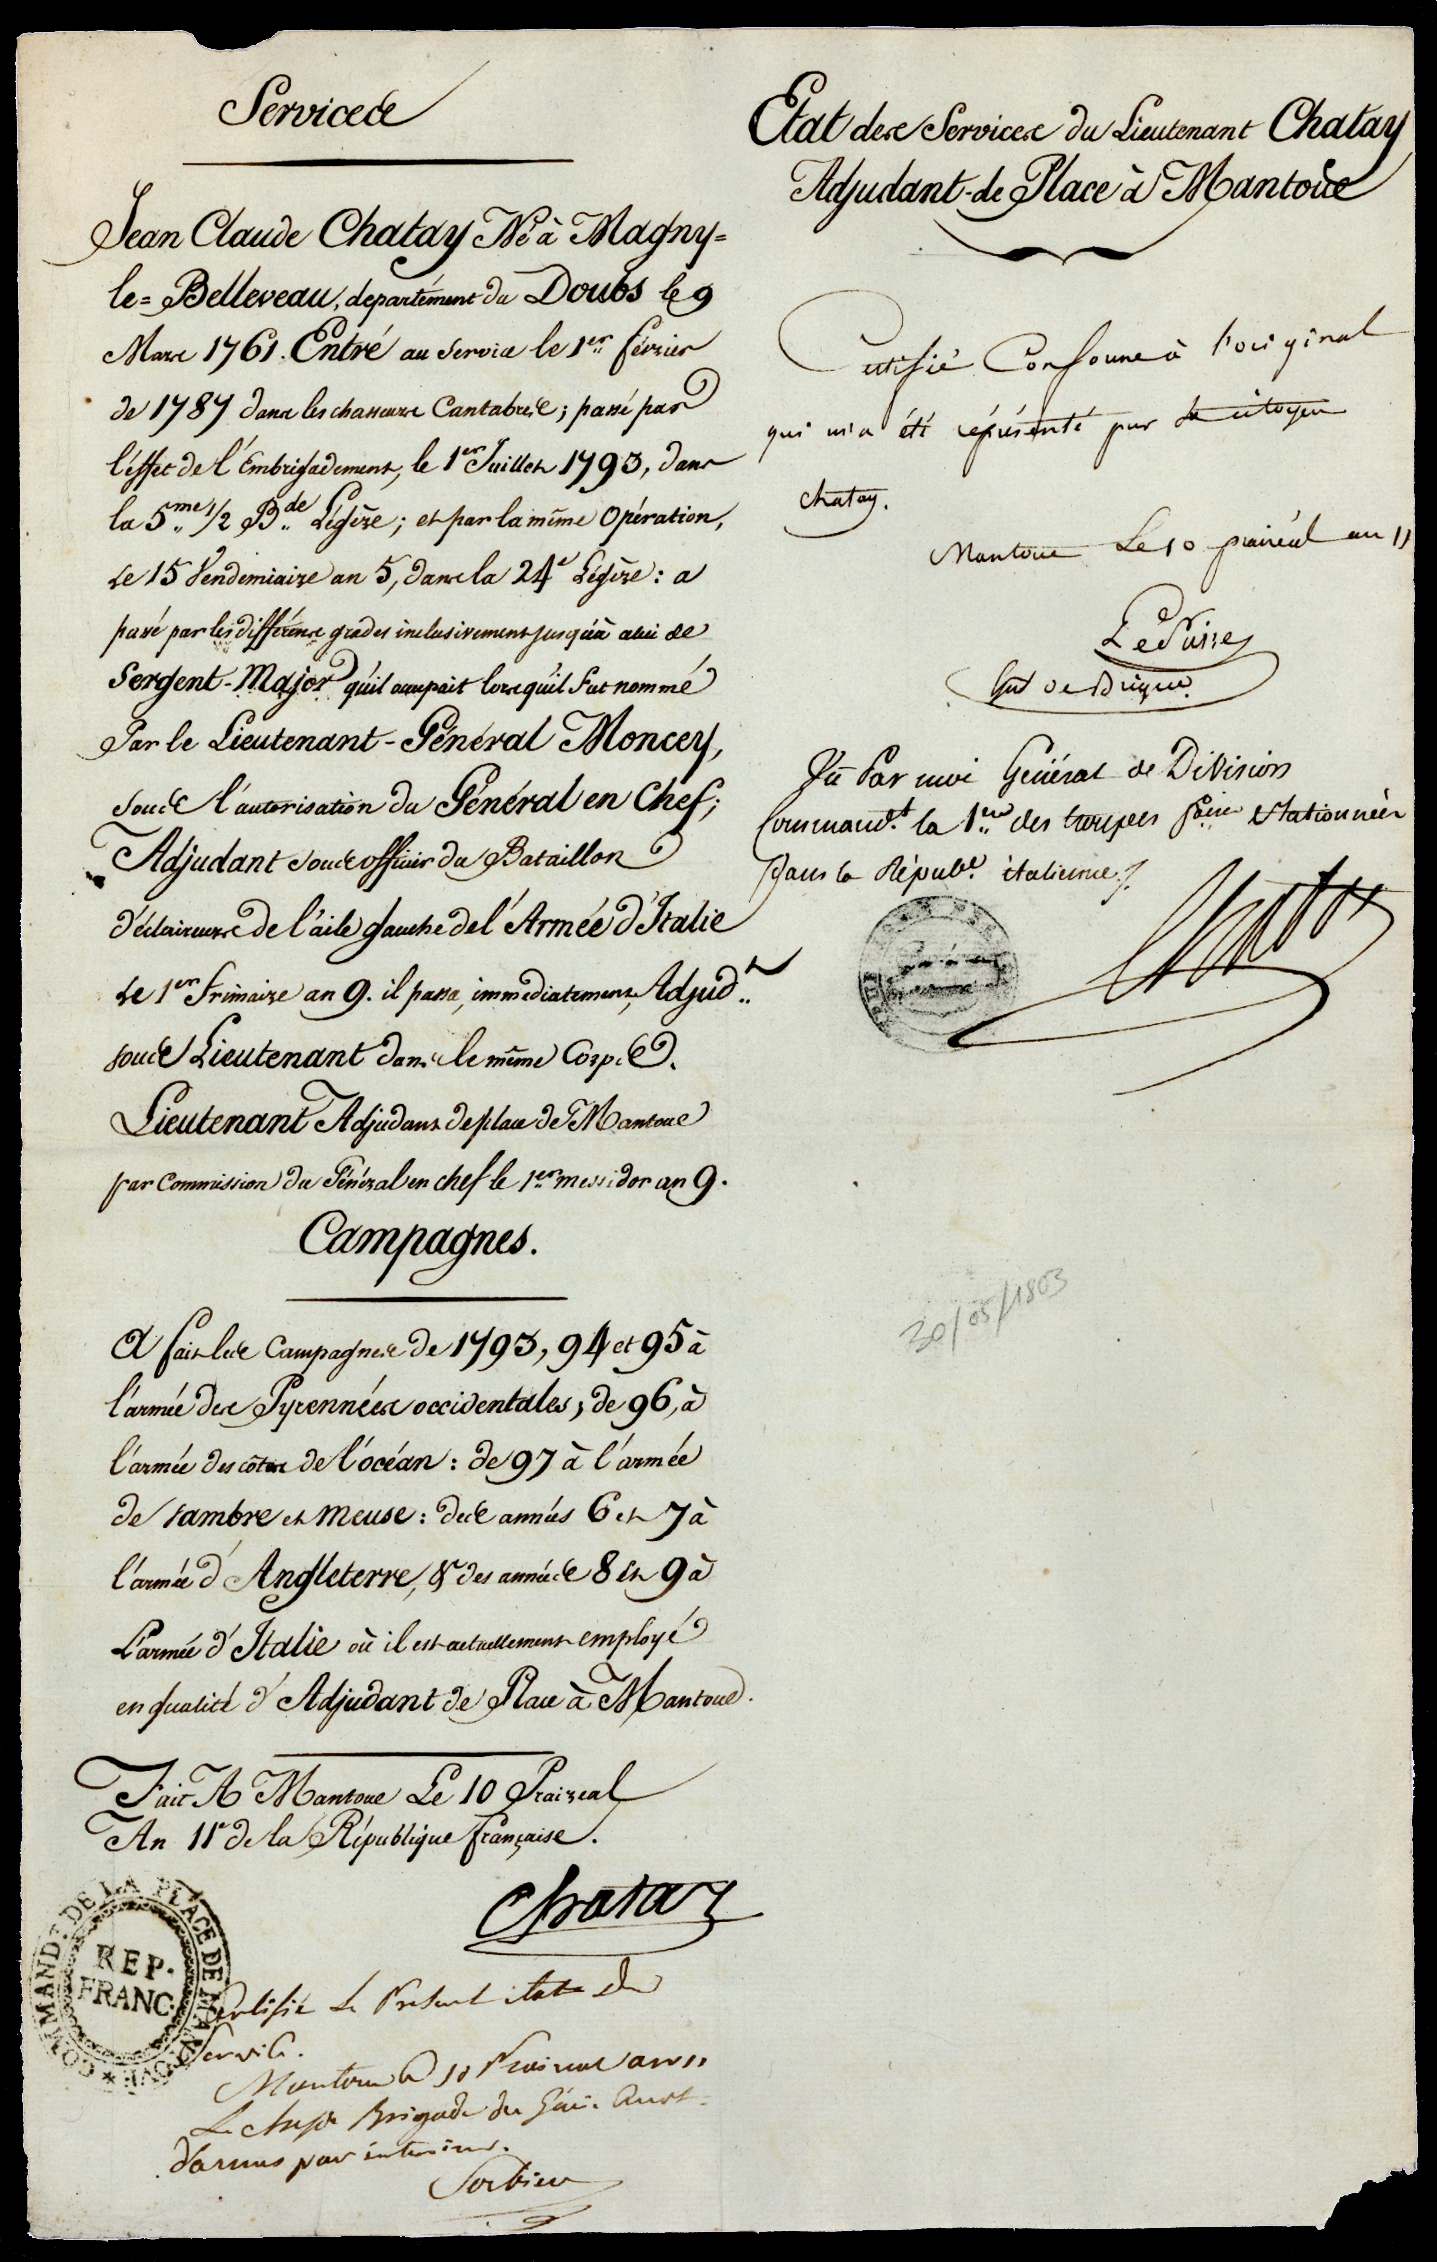 Services
Jean Claude Chatay Né à Magny=
le=Belleveau, departément du Doubs le 9
Mars 1761. Entré au service le 1er février
de 1787 dans les chasseurs Cantabres; passé par
l'éffet de l'Embrigadement, le 1er Juillet 1793, dans
la 5me 1/2 Bde Légère; et par la même Opération,
le 15 Vendemiaire an 5, dans la 24e Légère: a
passé par les différens grades inclusivement jusqu'à celui de
Sergent-Major qu'il occupait lorsqu'il fut nommé
Par le Lieutenant-Général Moncey,
sous l'autorisation du Général en Chef;
Adjudant sous officier du Bataillon
d'éclaireurs de l'aile gauche de l'Armée d'Italie
le 1er Frimaire an 9. il passa, immediatement, Adjudt
sous Lieutenant dans le même Corps.
Lieutenant Adjudant de place de Mantoue
par Commission du Général en chef le 1er messidor an 9.
Campagnes.
A fait les Campagnes de 1793, 94 et 95 à
l'armée des Pyrennées occidentales; de 96, à
l'armée des côtes de l'océan: de 97 à l'armée
de sambre et meuse: des années 6 et 7 à
l'armée d'Angleterre, & des années 8 et 9 à
L'armée d'Italie où il est actuellement employé
en qualité d'Adjudant de Place à Mantoue.
Fait A Mantoue Le 10 Prairéal
An 11e de la République française.
Chatay
COMMANDT DE LA PLACE DE MANTOVE
REP.
FRANC.
Certifié le Présent état de
Service.
Mantoue le 10 Prairial an 11
Le chef de Brigade du Génie Comt
d'armes par interim.
Sorbier
Etat des Services du Lieutenant Chatay
Adjudant-de Place à Mantoue
Certifié Conforme à l'original
qui m'a été réprésenté par le citoyen
chatay.
Mantoue Le 10 prairéal an 11
Gal de Brigade
Vû Par moi Général de Division
Commandt la 1ere des troupes fses Stationnées
Dans la Républe italienne
30/05/1803